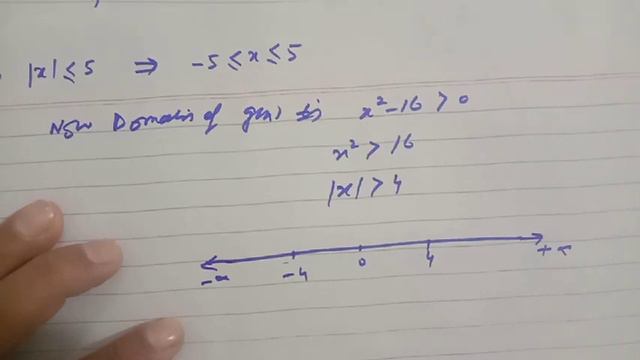 |x| ≤ 5 ⇒ -5 ≤ x ≤ 5
Now Domain of g(x) is x² - 16 > 0
x² > 16
|x| > 4
-∞ -4 0 4 +∞